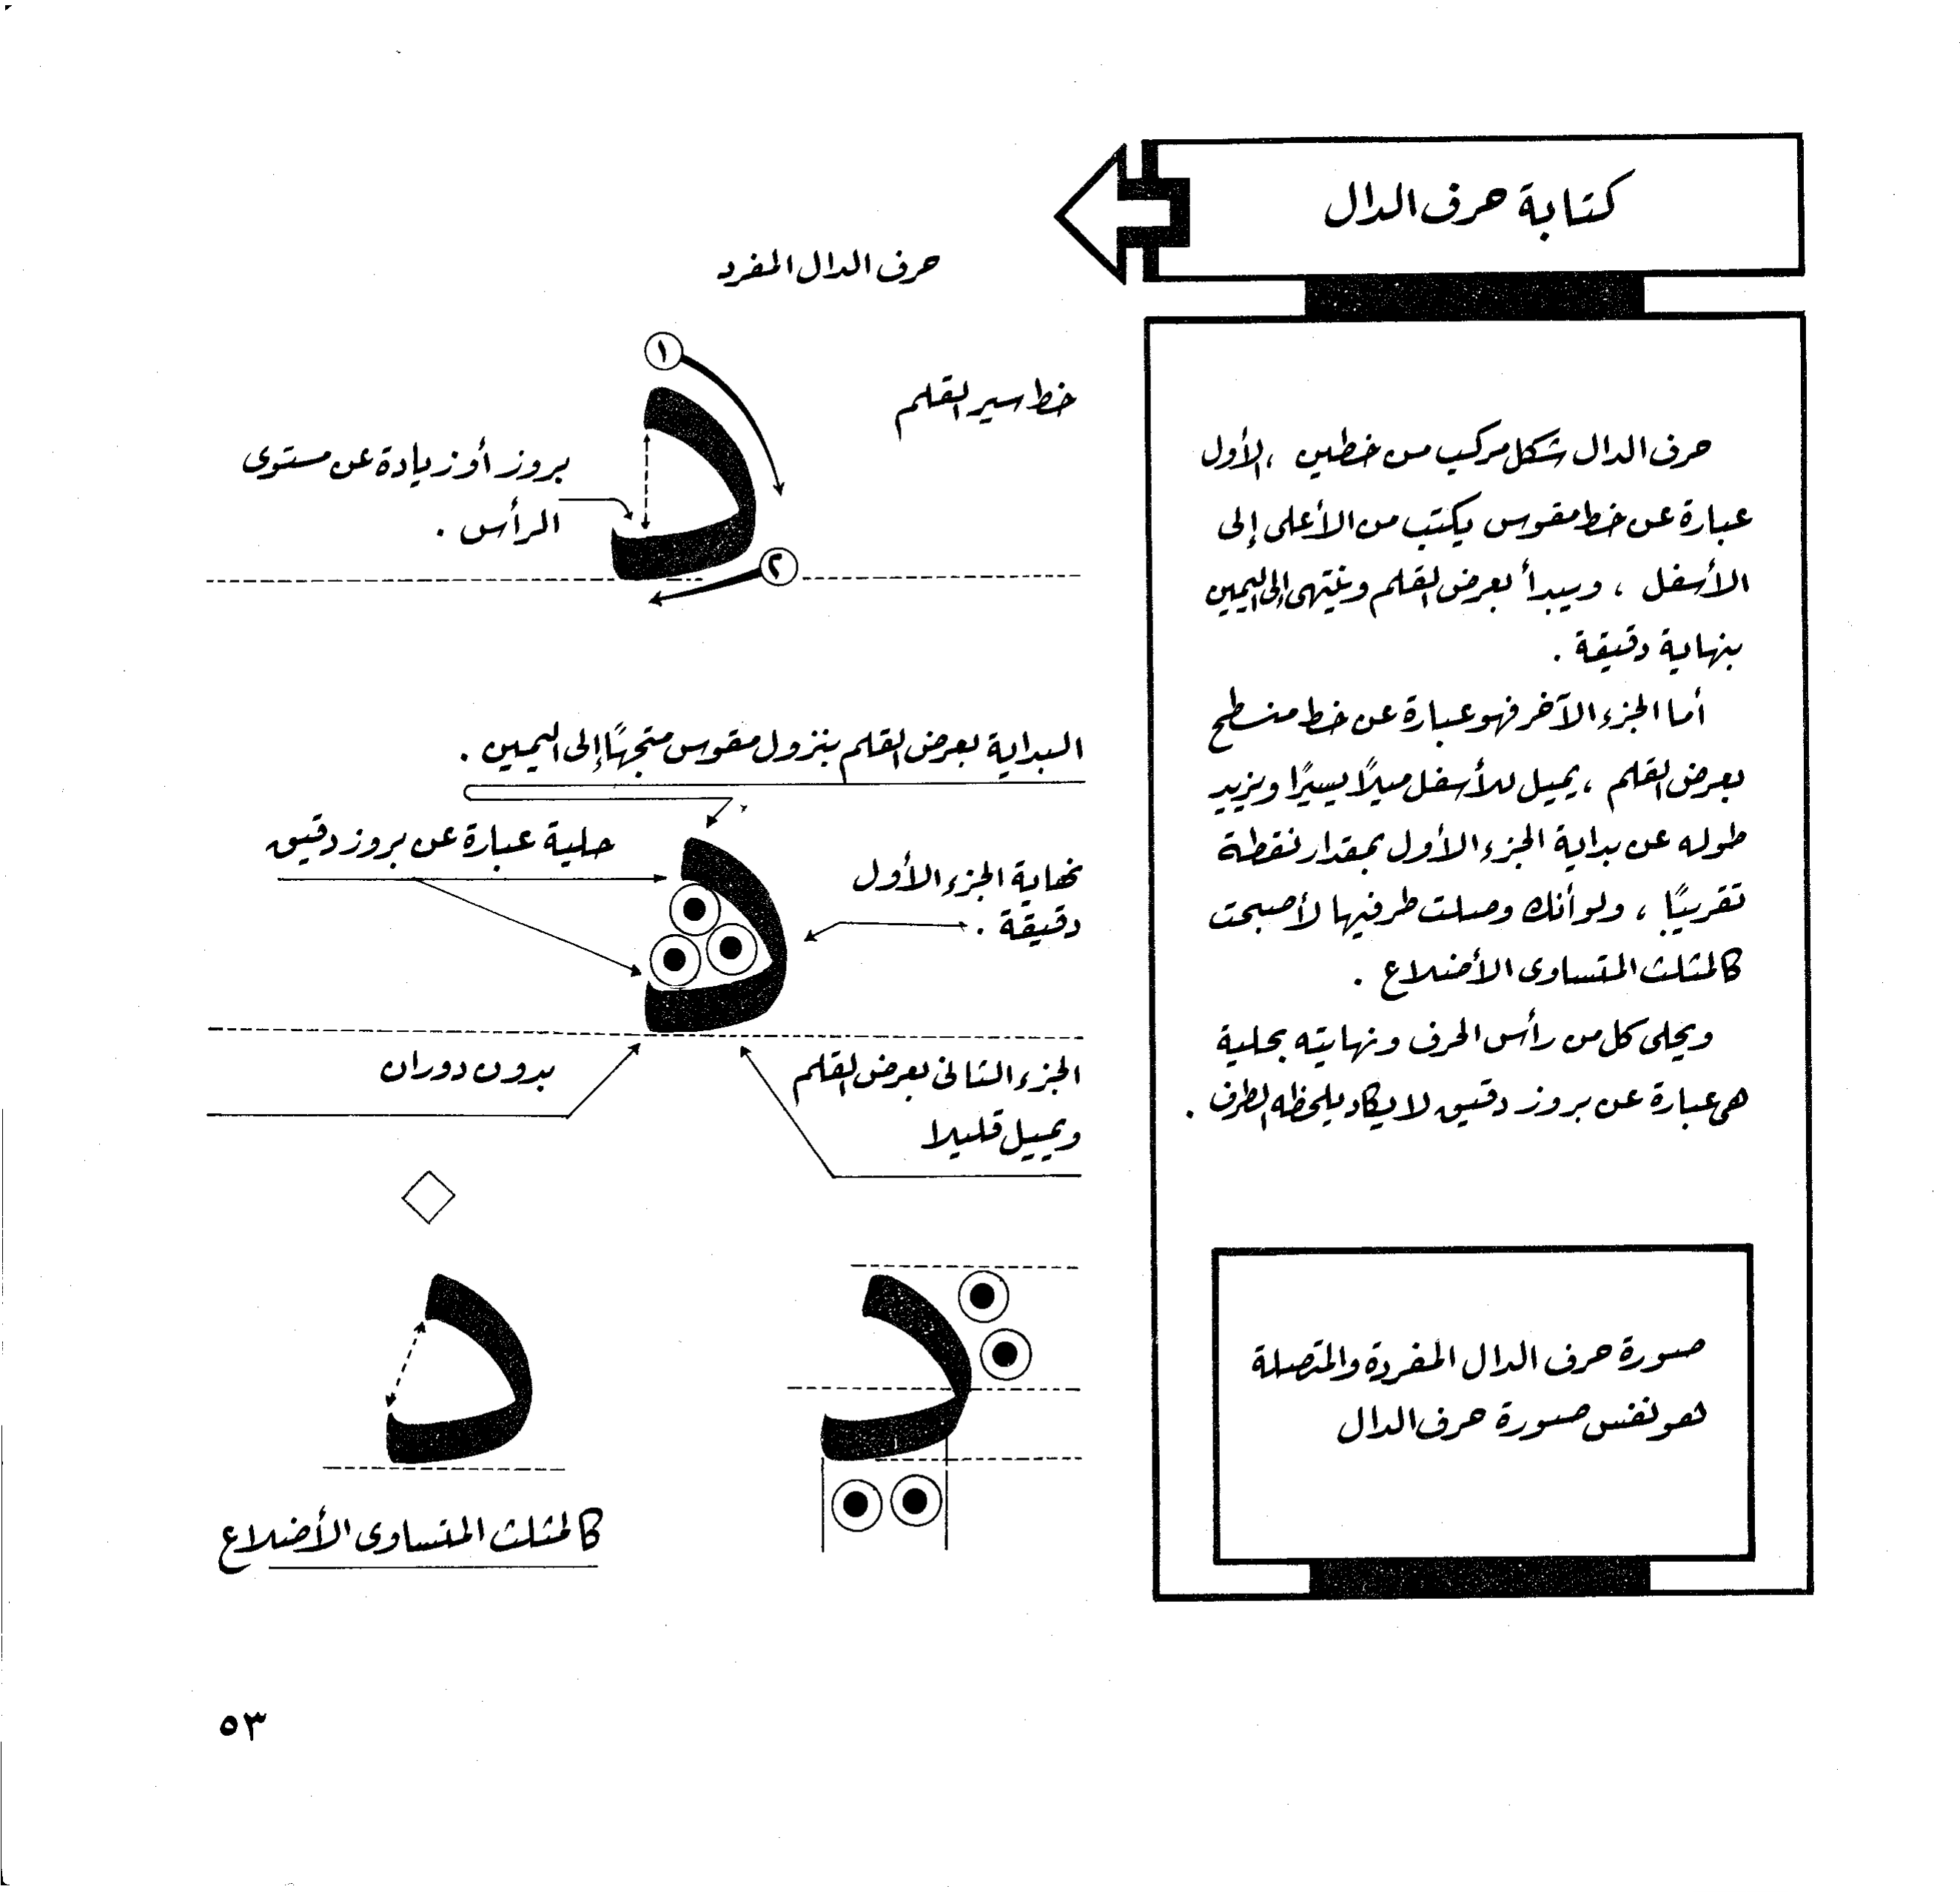 كتابة حرف الدال
حرف الدال شكل مركب من خطين ، الأول
عبارة عن خط مقوس يكتب من الأعلى إلى
الأسفل ، ويبدأ بعرض القلم وينتهى إلى اليمين
بنهاية دقيقة .
أما الجزء الآخر فهو عبارة عن خط منسطح
بعرض القلم ، يميل للأسفل ميلاً يسيرًا ويزيد
طوله عن بداية الجزء الأول بمقدار نقطة
تقريبًا ، ولو أنك وصلت طرفيها لأصبحت
كالمثلث المتساوى الأضلاع .
ويحلى كل من رأس الحرف ونهايته بحلية
هى عبارة عن بروز دقيق لا يكاد يلحظه الطرف .
صورة حرف الدال المفردة والمتصلة
هو نفس صورة حرف الدال
حرف الدال المفرد
خط سير القلم
١
بروز أو زيادة عن مستوى
الرأس .
٢
البداية بعرض القلم بنزول مقوس متجهًا إلى اليمين .
حلية عبارة عن بروز دقيق
نهاية الجزء الأول
دقيقة .
الجزء الثانى بعرض القلم
ويميل قليلا
بدون دوران
كالمثلث المتساوى الأضلاع
٥٣